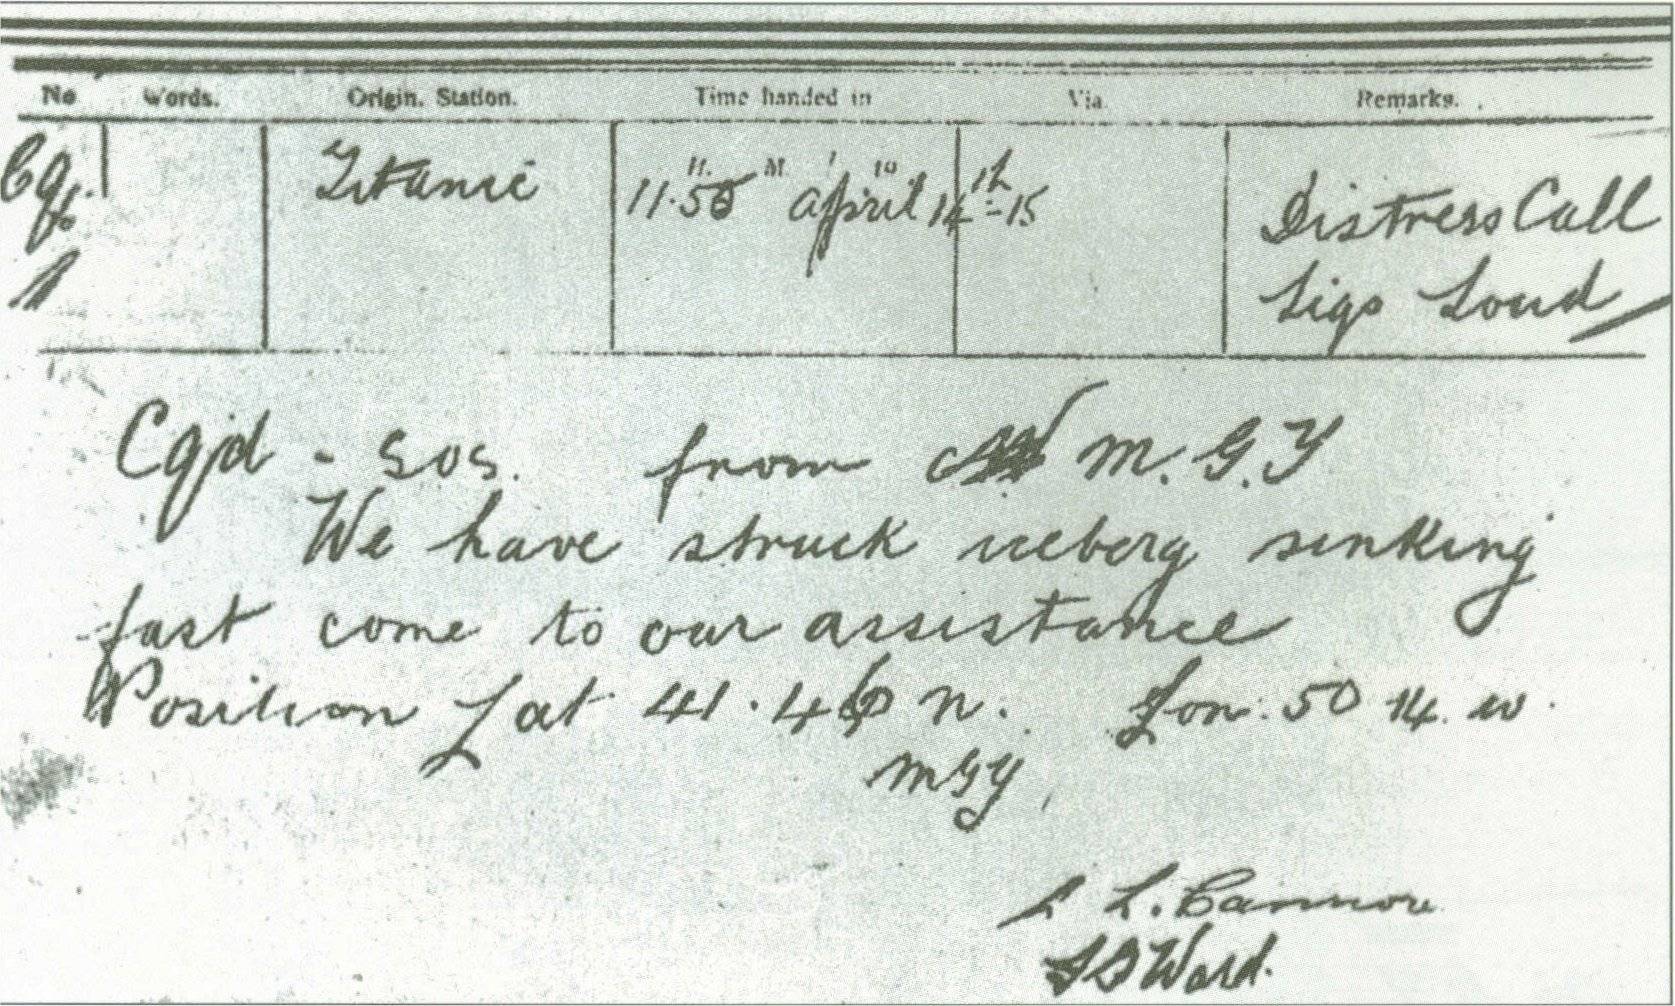 No Words. Origin. Station. Time handed in Via Remarks.
Cq Titanic 11.50 april 14th-15 Distress Call
Sigs Loud
Cqd - sos. from M.G.Y
We have struck iceberg sinking
fast come to our assistance
Position Lat 41.46 n. Lon. 50 14. w.
MGY
Ward.